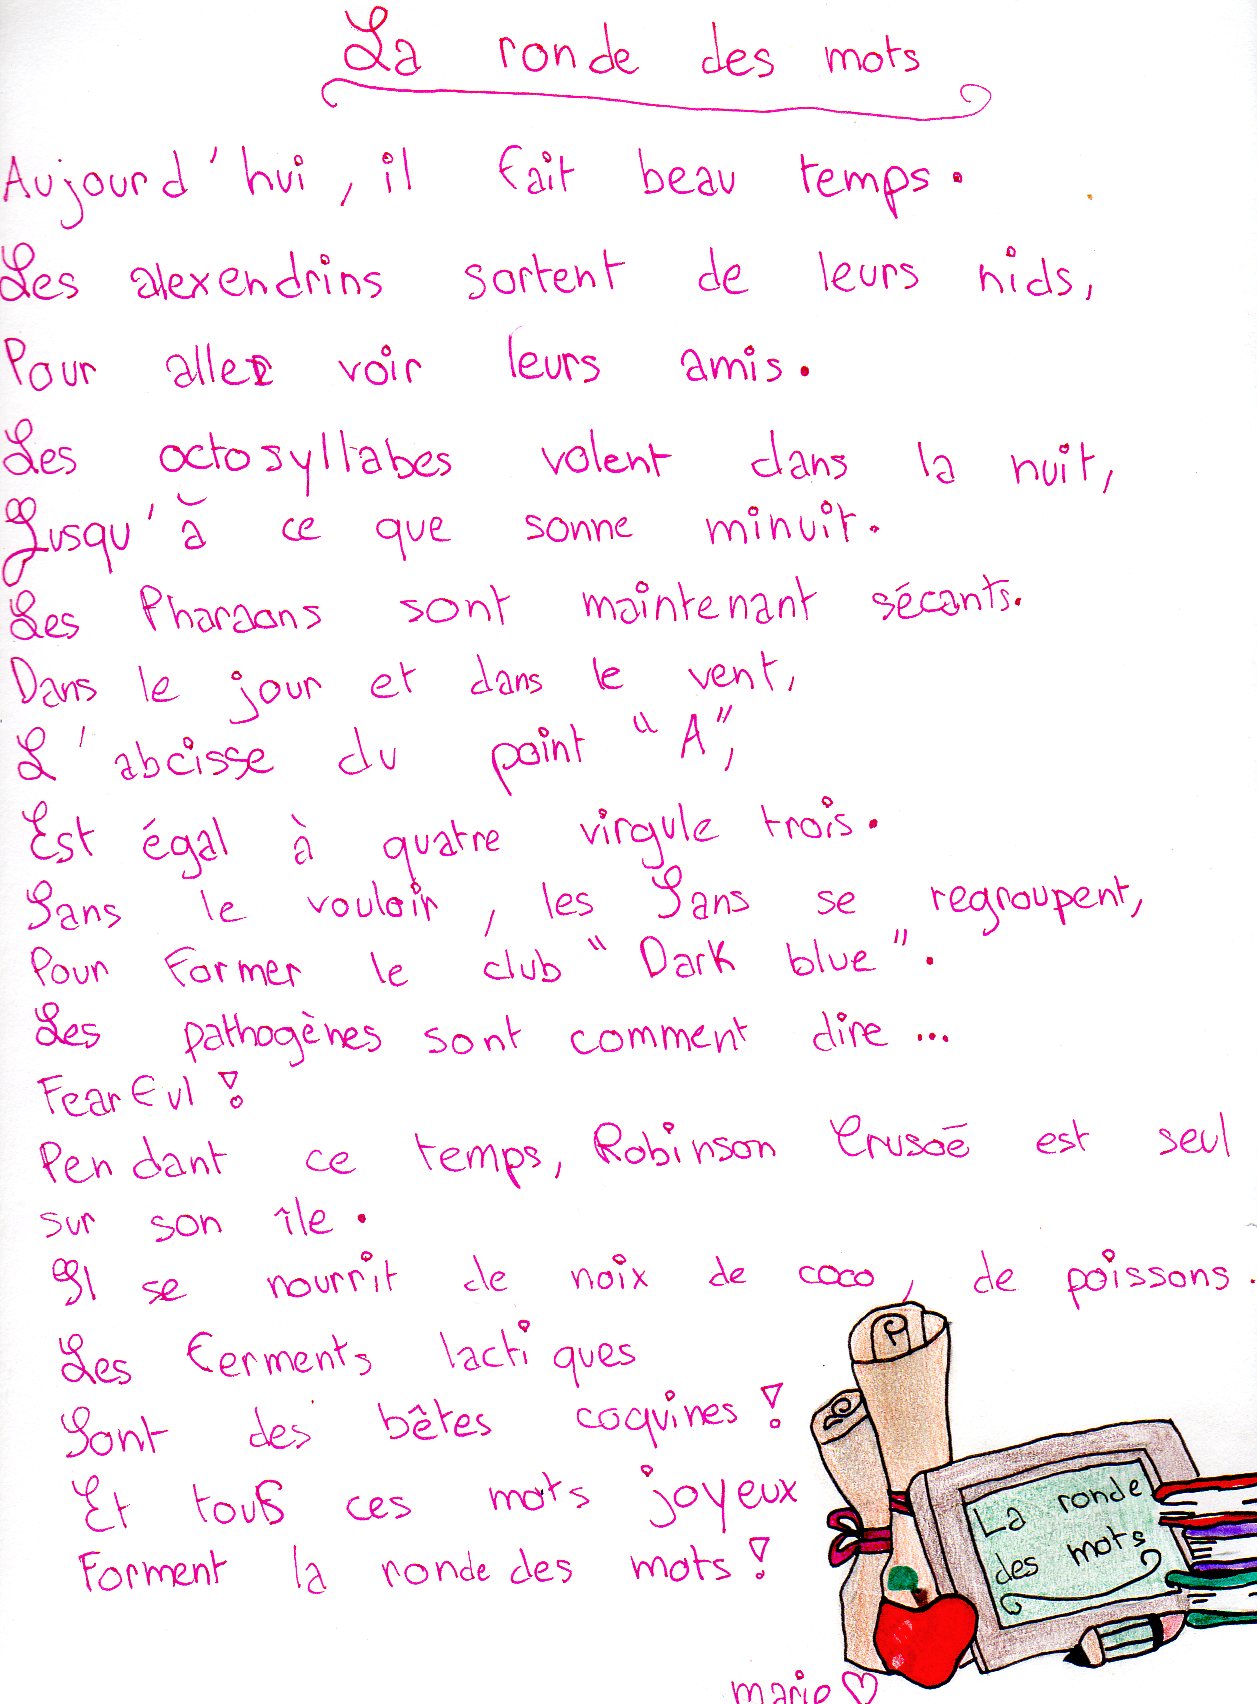 La ronde des mots
Aujourd'hui, il fait beau temps.
Les alexendrins sortent de leurs nids,
Pour aller voir leurs amis.
Les octosyllabes volent dans la nuit,
Jusqu'à ce que sonne minuit.
Les Pharaons sont maintenant sécants.
Dans le jour et dans le vent,
L'abcisse du point "A",
Est égal à quatre virgule trois.
Sans le vouloir, les Sans se regroupent,
Pour former le club "Dark blue".
Les pathogènes sont comment dire...
Fearful !
Pendant ce temps, Robinson Crusoë est seul
sur son île.
Il se nourrit de noix de coco, de poissons.
Les ferments lactiques
Sont des bêtes coquines !
Et tous ces mots joyeux
Forment la ronde des mots !
La ronde
des mots
marie